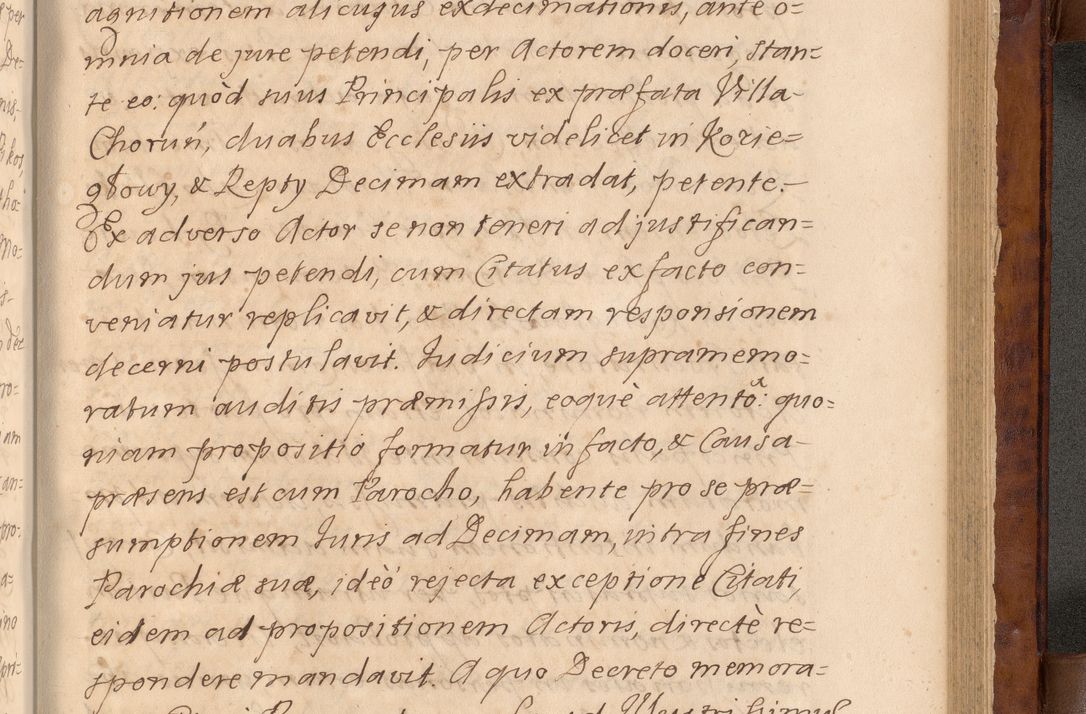 agnitionem alicujus exdecimationis, ante o=
mnia de jure petendi, per Actorem doceri, stan=
te eo: quòd suus Principalis ex præfata Villa
Choruń, duabus Ecclesiis videlicet in Kozie=
głowy, & Repty Decimam extradat, petente.
Ex adverso Actor se non teneri ad justifican=
dum jus petendi, cum Citatus ex facto con=
veniatur replicavit, & directam responsionem
decerni postulavit. Judicium supramemo=
ratum auditis præmissis, eoquè attentô: quo=
niam propositio formatur in facto, & Causa
præsens est cum Parocho, habente pro se præ=
sumptionem Juris ad Decimam, intra fines
Parochiæ suæ, ideò rejecta exceptione Citati,
eidem ad propositionem Actoris, directè re=
spondere mandavit. A quo Decreto memora=